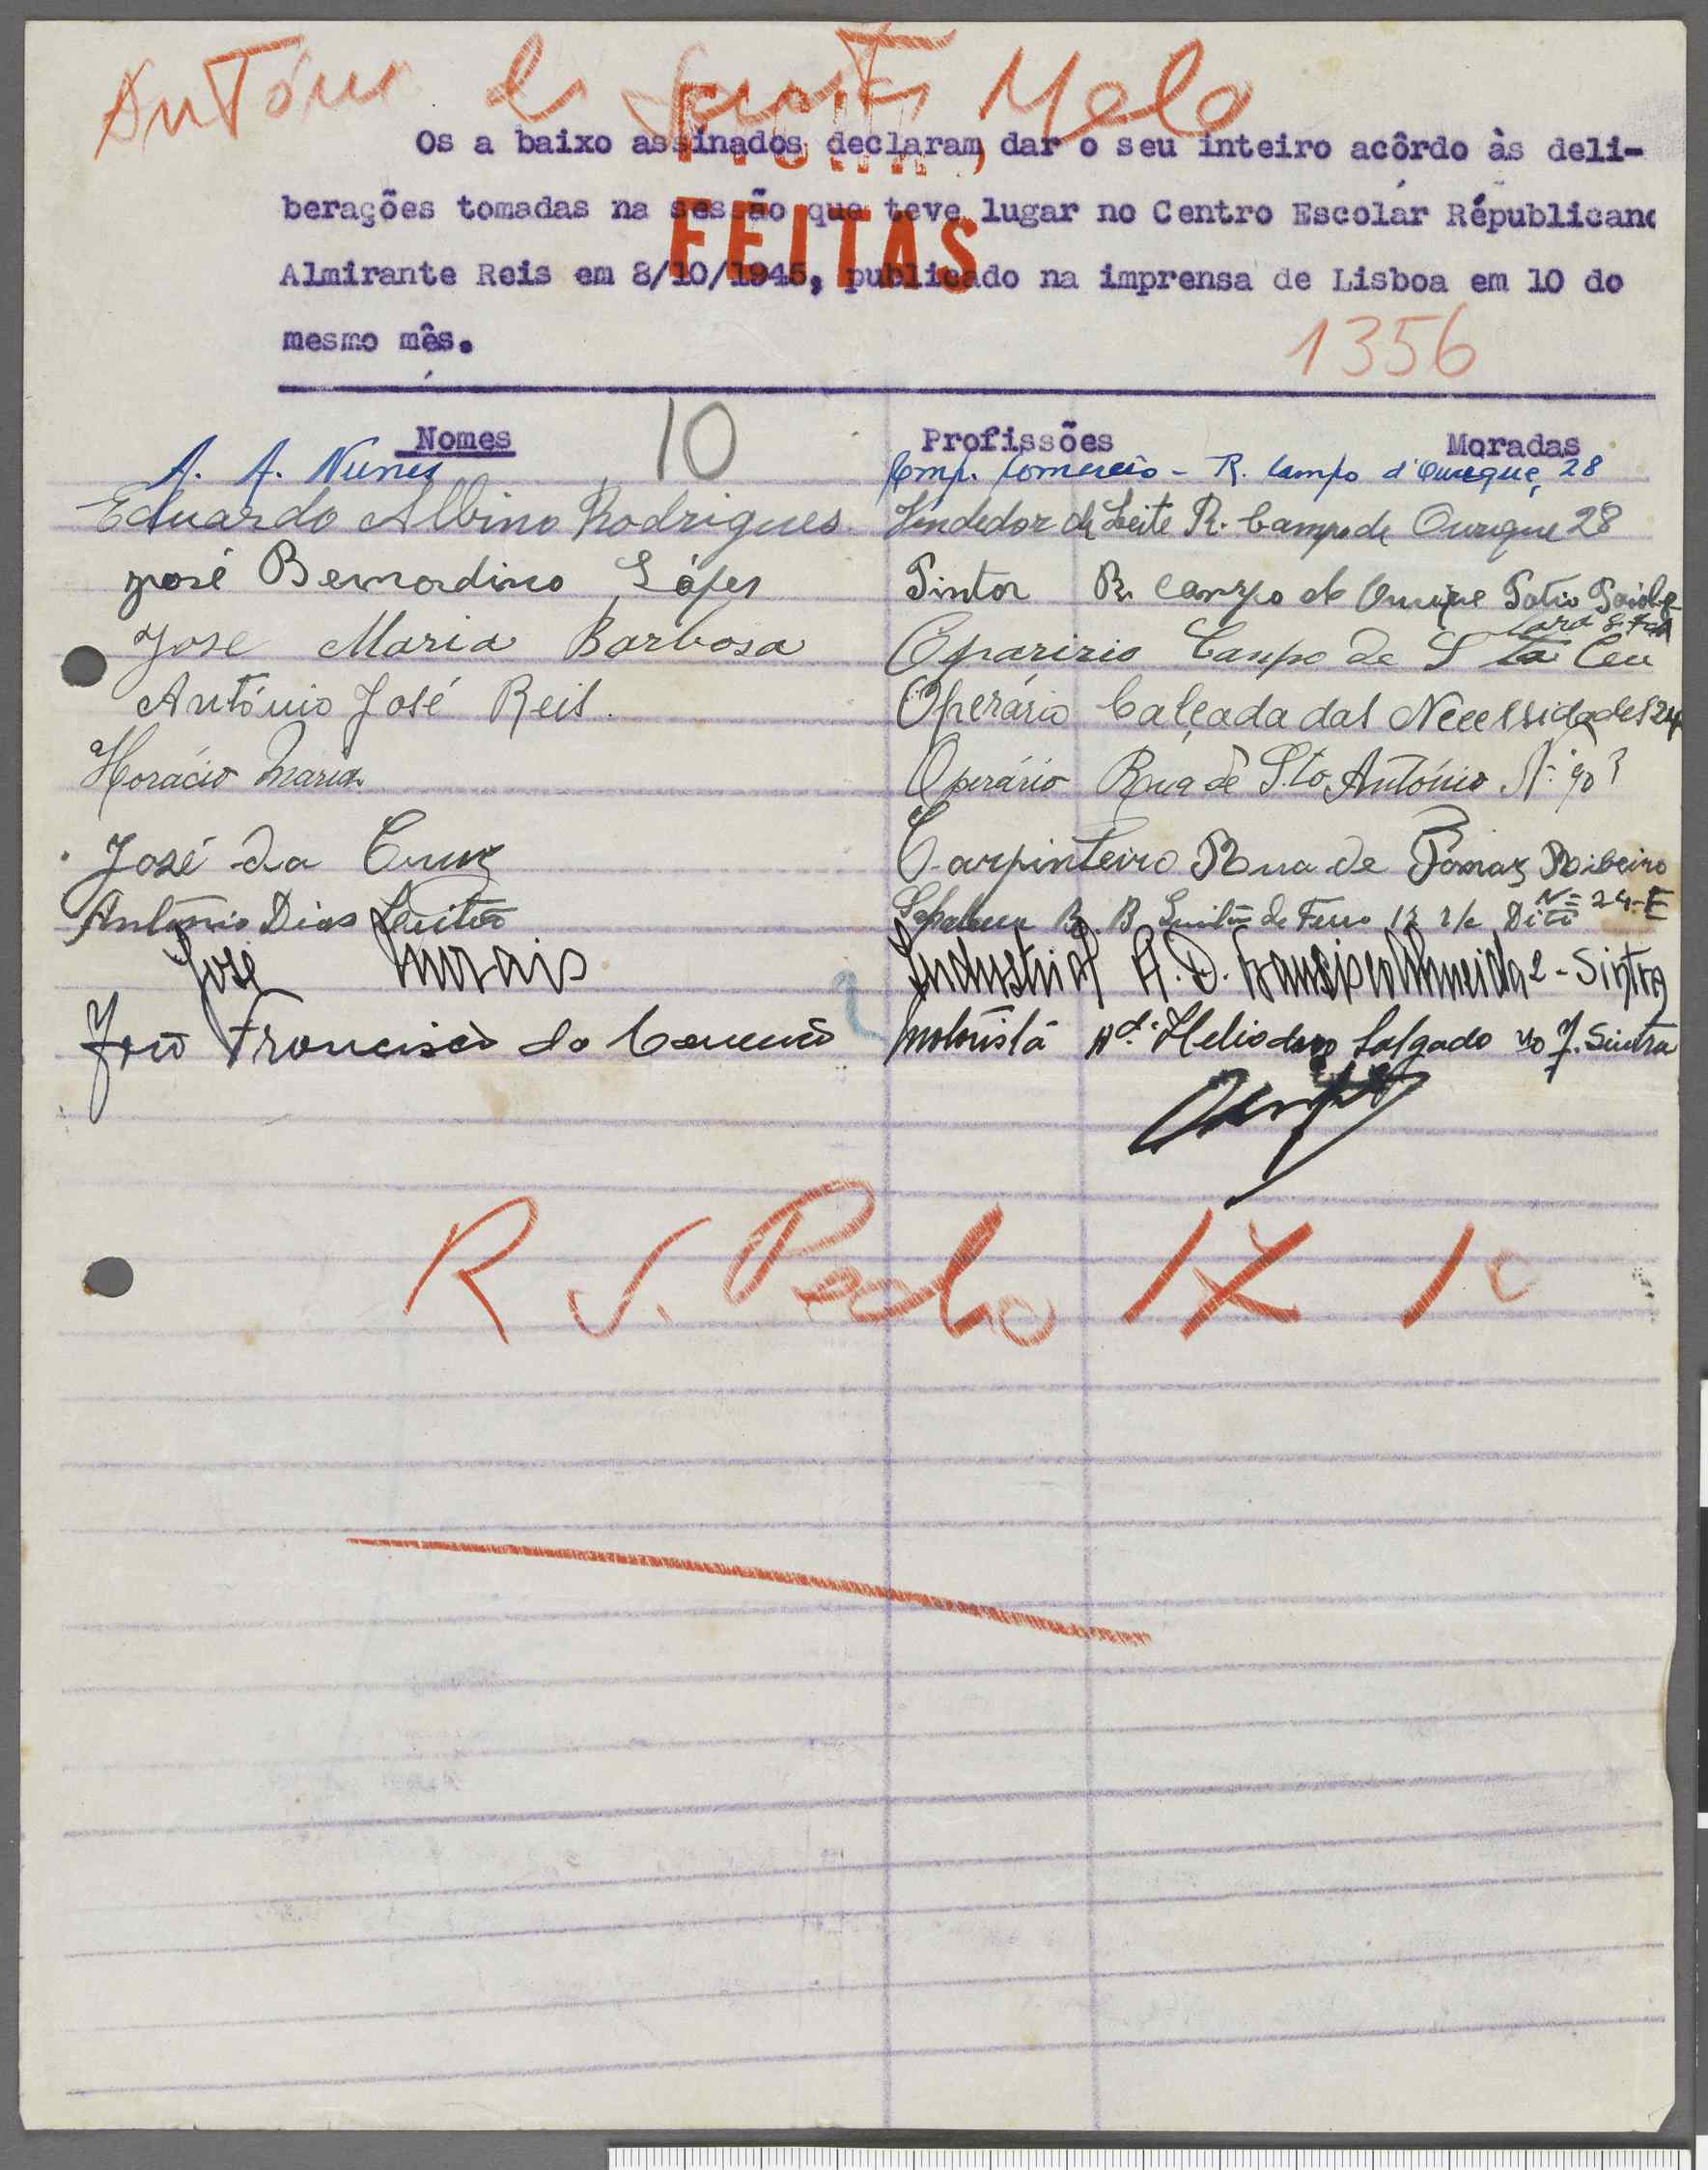 António de Melo
Os a baixo assinados declaram, dar o seu inteiro acôrdo às deli-
berações tomadas na sessão que teve lugar no Centro Escolár Républicano
FEITAS
Almirante Reis em 8/10/1945, publicado na imprensa de Lisboa em 10 do
mesmo mês.
1356
Nomes 10 Profissões Moradas
A. A. Nunes Emp. Comercio - R. Campo d'Ourique, 28
Eduardo Albino Rodrigues Vendedor de Leite R. Campo de Ourique 28
José Bernardino Lópes Pintor R. Campo de Ourique Patio
José Maria Barbosa Campo de
António José Reis. Operário Calçada das Necessidades 24
Horácio Maria Operário Rua de Sto António Nº 90
José da Cruz Carpinteiro Rua de Tomaz Ribeiro
Nº 24-E
António Dias Leitão de Ferro 12 r/c
José Morais Industrial A. D. Francisco Almeida 2 - Sintra
João Francisco do motorista Ad. Heliodoro Salgado Sintra
R S. Paolo 17 1º